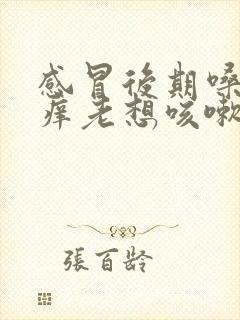 感冒後期嗓
癢老想咳嗽
張百龄